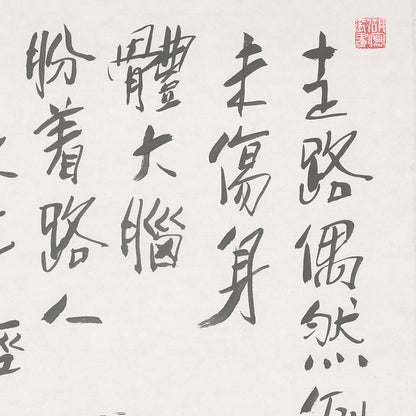 走路偶然
未傷身
體大腦
盼着路人